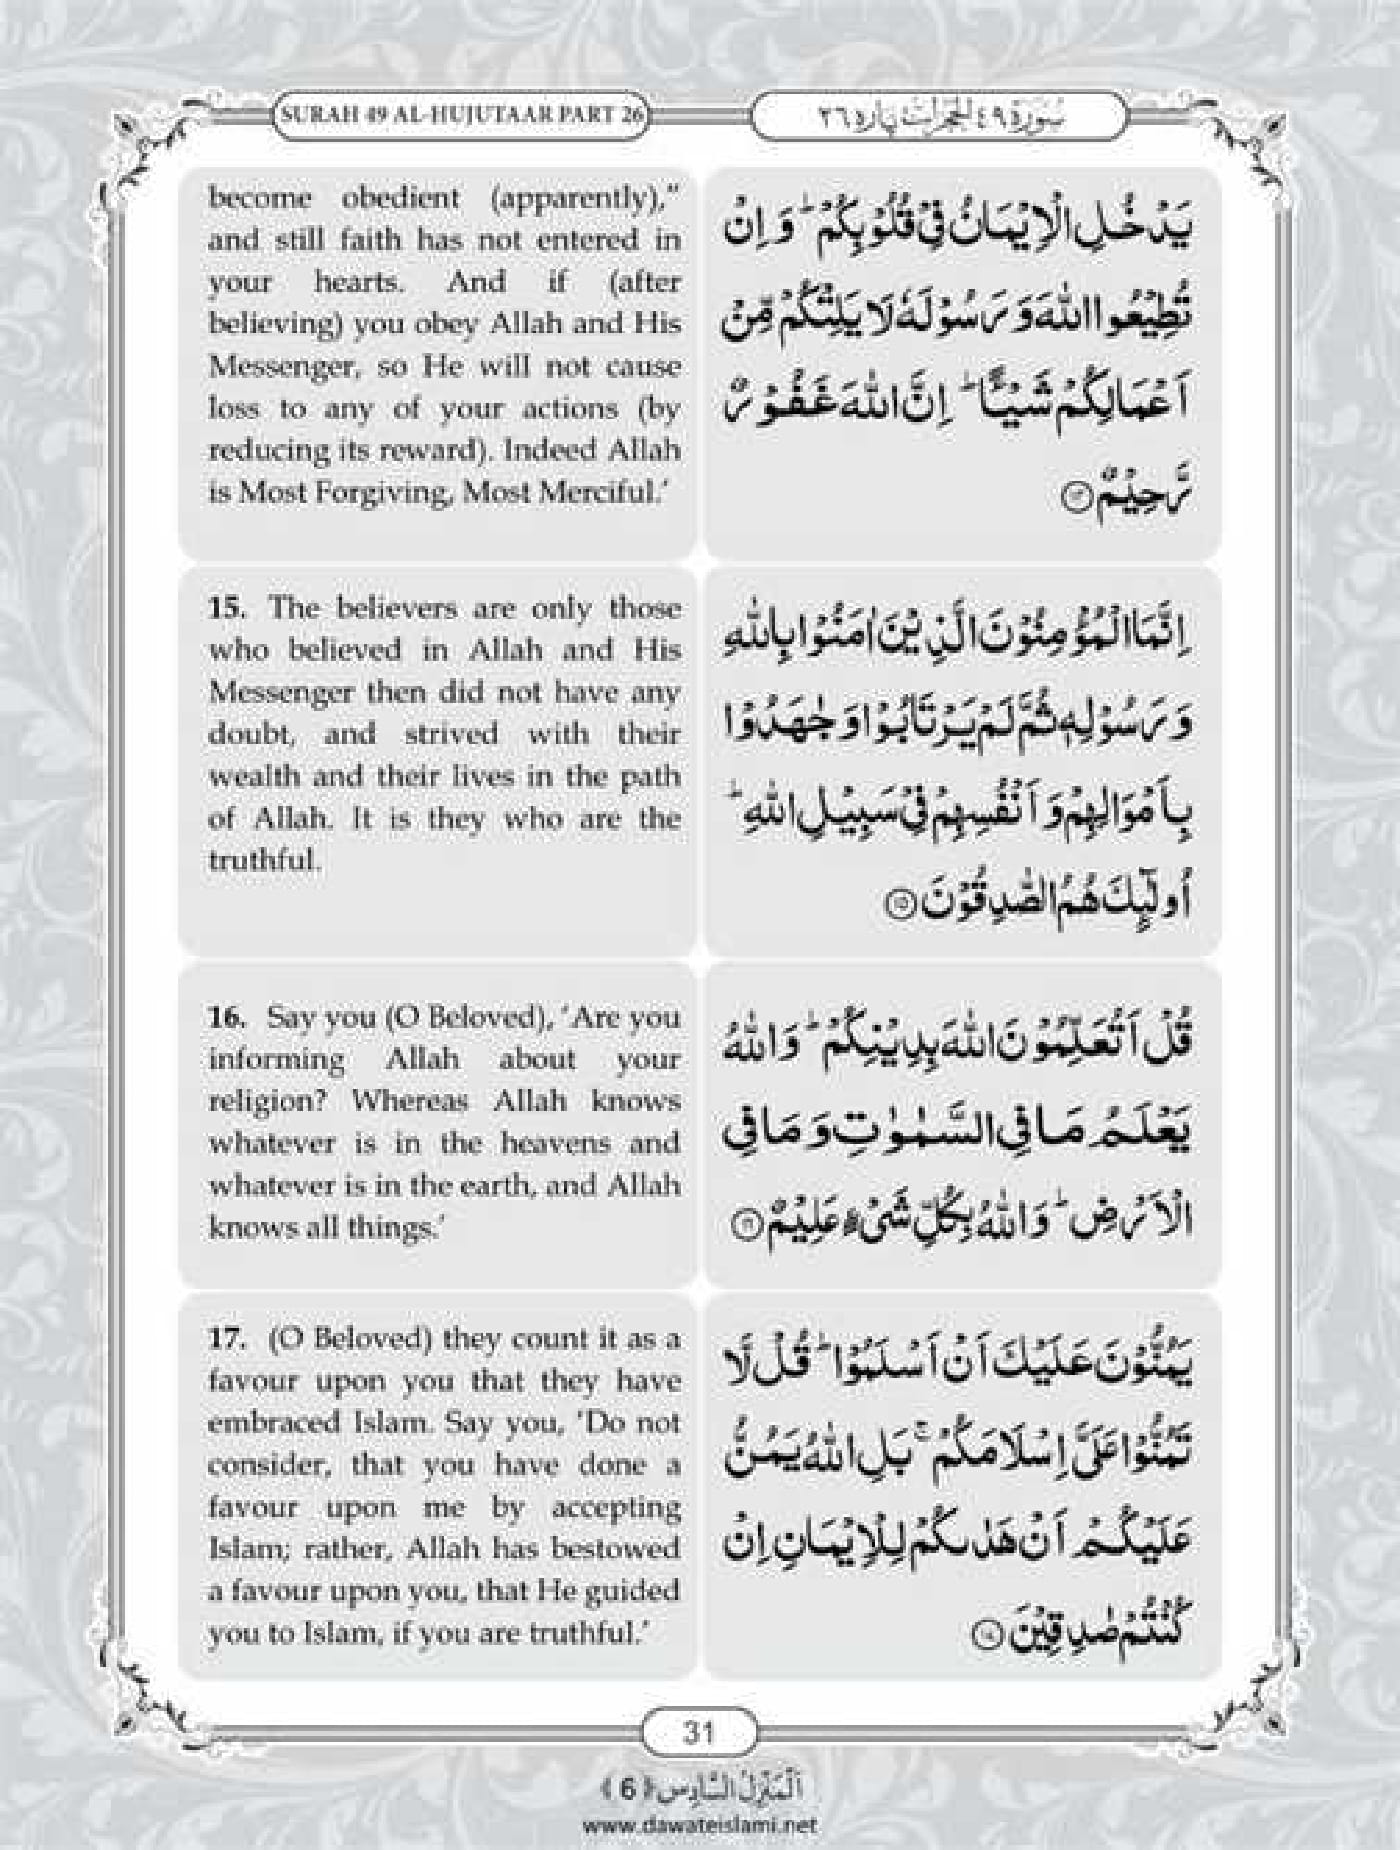 SURAH 49 AL-HUJUTAAR PART 26
سُوْرَةُ ٤٩ الحُجُرَات پاره ٢٦
become obedient (apparently),”
and still faith has not entered in
your hearts. And if (after
believing) you obey Allah and His
Messenger, so He will not cause
loss to any of your actions (by
reducing its reward). Indeed Allah
is Most Forgiving, Most Merciful.’
يَدْخُلِ الْاِيْمَانُ فِيْ قُلُوْبِكُمْ ؕ وَ اِنْ
تُطِيْعُوا اللّٰهَ وَ رَسُوْلَهٗ لَا يَلِتْكُمْ مِّنْ
اَعْمَالِكُمْ شَيْـًٔا ؕ اِنَّ اللّٰهَ غَفُوْرٌ
رَّحِيْمٌ ﴿۱۴﴾
15. The believers are only those
who believed in Allah and His
Messenger then did not have any
doubt, and strived with their
wealth and their lives in the path
of Allah. It is they who are the
truthful.
اِنَّمَا الْمُؤْمِنُوْنَ الَّذِيْنَ اٰمَنُوْا بِاللّٰهِ
وَ رَسُوْلِهٖ ثُمَّ لَمْ يَرْتَابُوْا وَ جٰهَدُوْا
بِاَمْوَالِهِمْ وَ اَنْفُسِهِمْ فِيْ سَبِيْلِ اللّٰهِ ؕ
اُولٰٓئِكَ هُمُ الصّٰدِقُوْنَ ﴿۱۵﴾
16. Say you (O Beloved), ‘Are you
informing Allah about your
religion? Whereas Allah knows
whatever is in the heavens and
whatever is in the earth, and Allah
knows all things.’
قُلْ اَتُعَلِّمُوْنَ اللّٰهَ بِدِيْنِكُمْ ؕ وَ اللّٰهُ
يَعْلَمُ مَا فِي السَّمٰوٰتِ وَ مَا فِي
الْاَرْضِ ؕ وَ اللّٰهُ بِكُلِّ شَيْءٍ عَلِيْمٌ ﴿۱۶﴾
17. (O Beloved) they count it as a
favour upon you that they have
embraced Islam. Say you, ‘Do not
consider, that you have done a
favour upon me by accepting
Islam; rather, Allah has bestowed
a favour upon you, that He guided
you to Islam, if you are truthful.’
يَمُنُّوْنَ عَلَيْكَ اَنْ اَسْلَمُوْا ؕ قُلْ لَّا
تَمُنُّوْا عَلَيَّ اِسْلَامَكُمْ ۚ بَلِ اللّٰهُ يَمُنُّ
عَلَيْكُمْ اَنْ هَدٰىكُمْ لِلْاِيْمَانِ اِنْ
كُنْتُمْ صٰدِقِيْنَ ﴿۱۷﴾
31
اَلْمَنْزِلُ السَّادِس ﴿6﴾
www.dawateislami.net